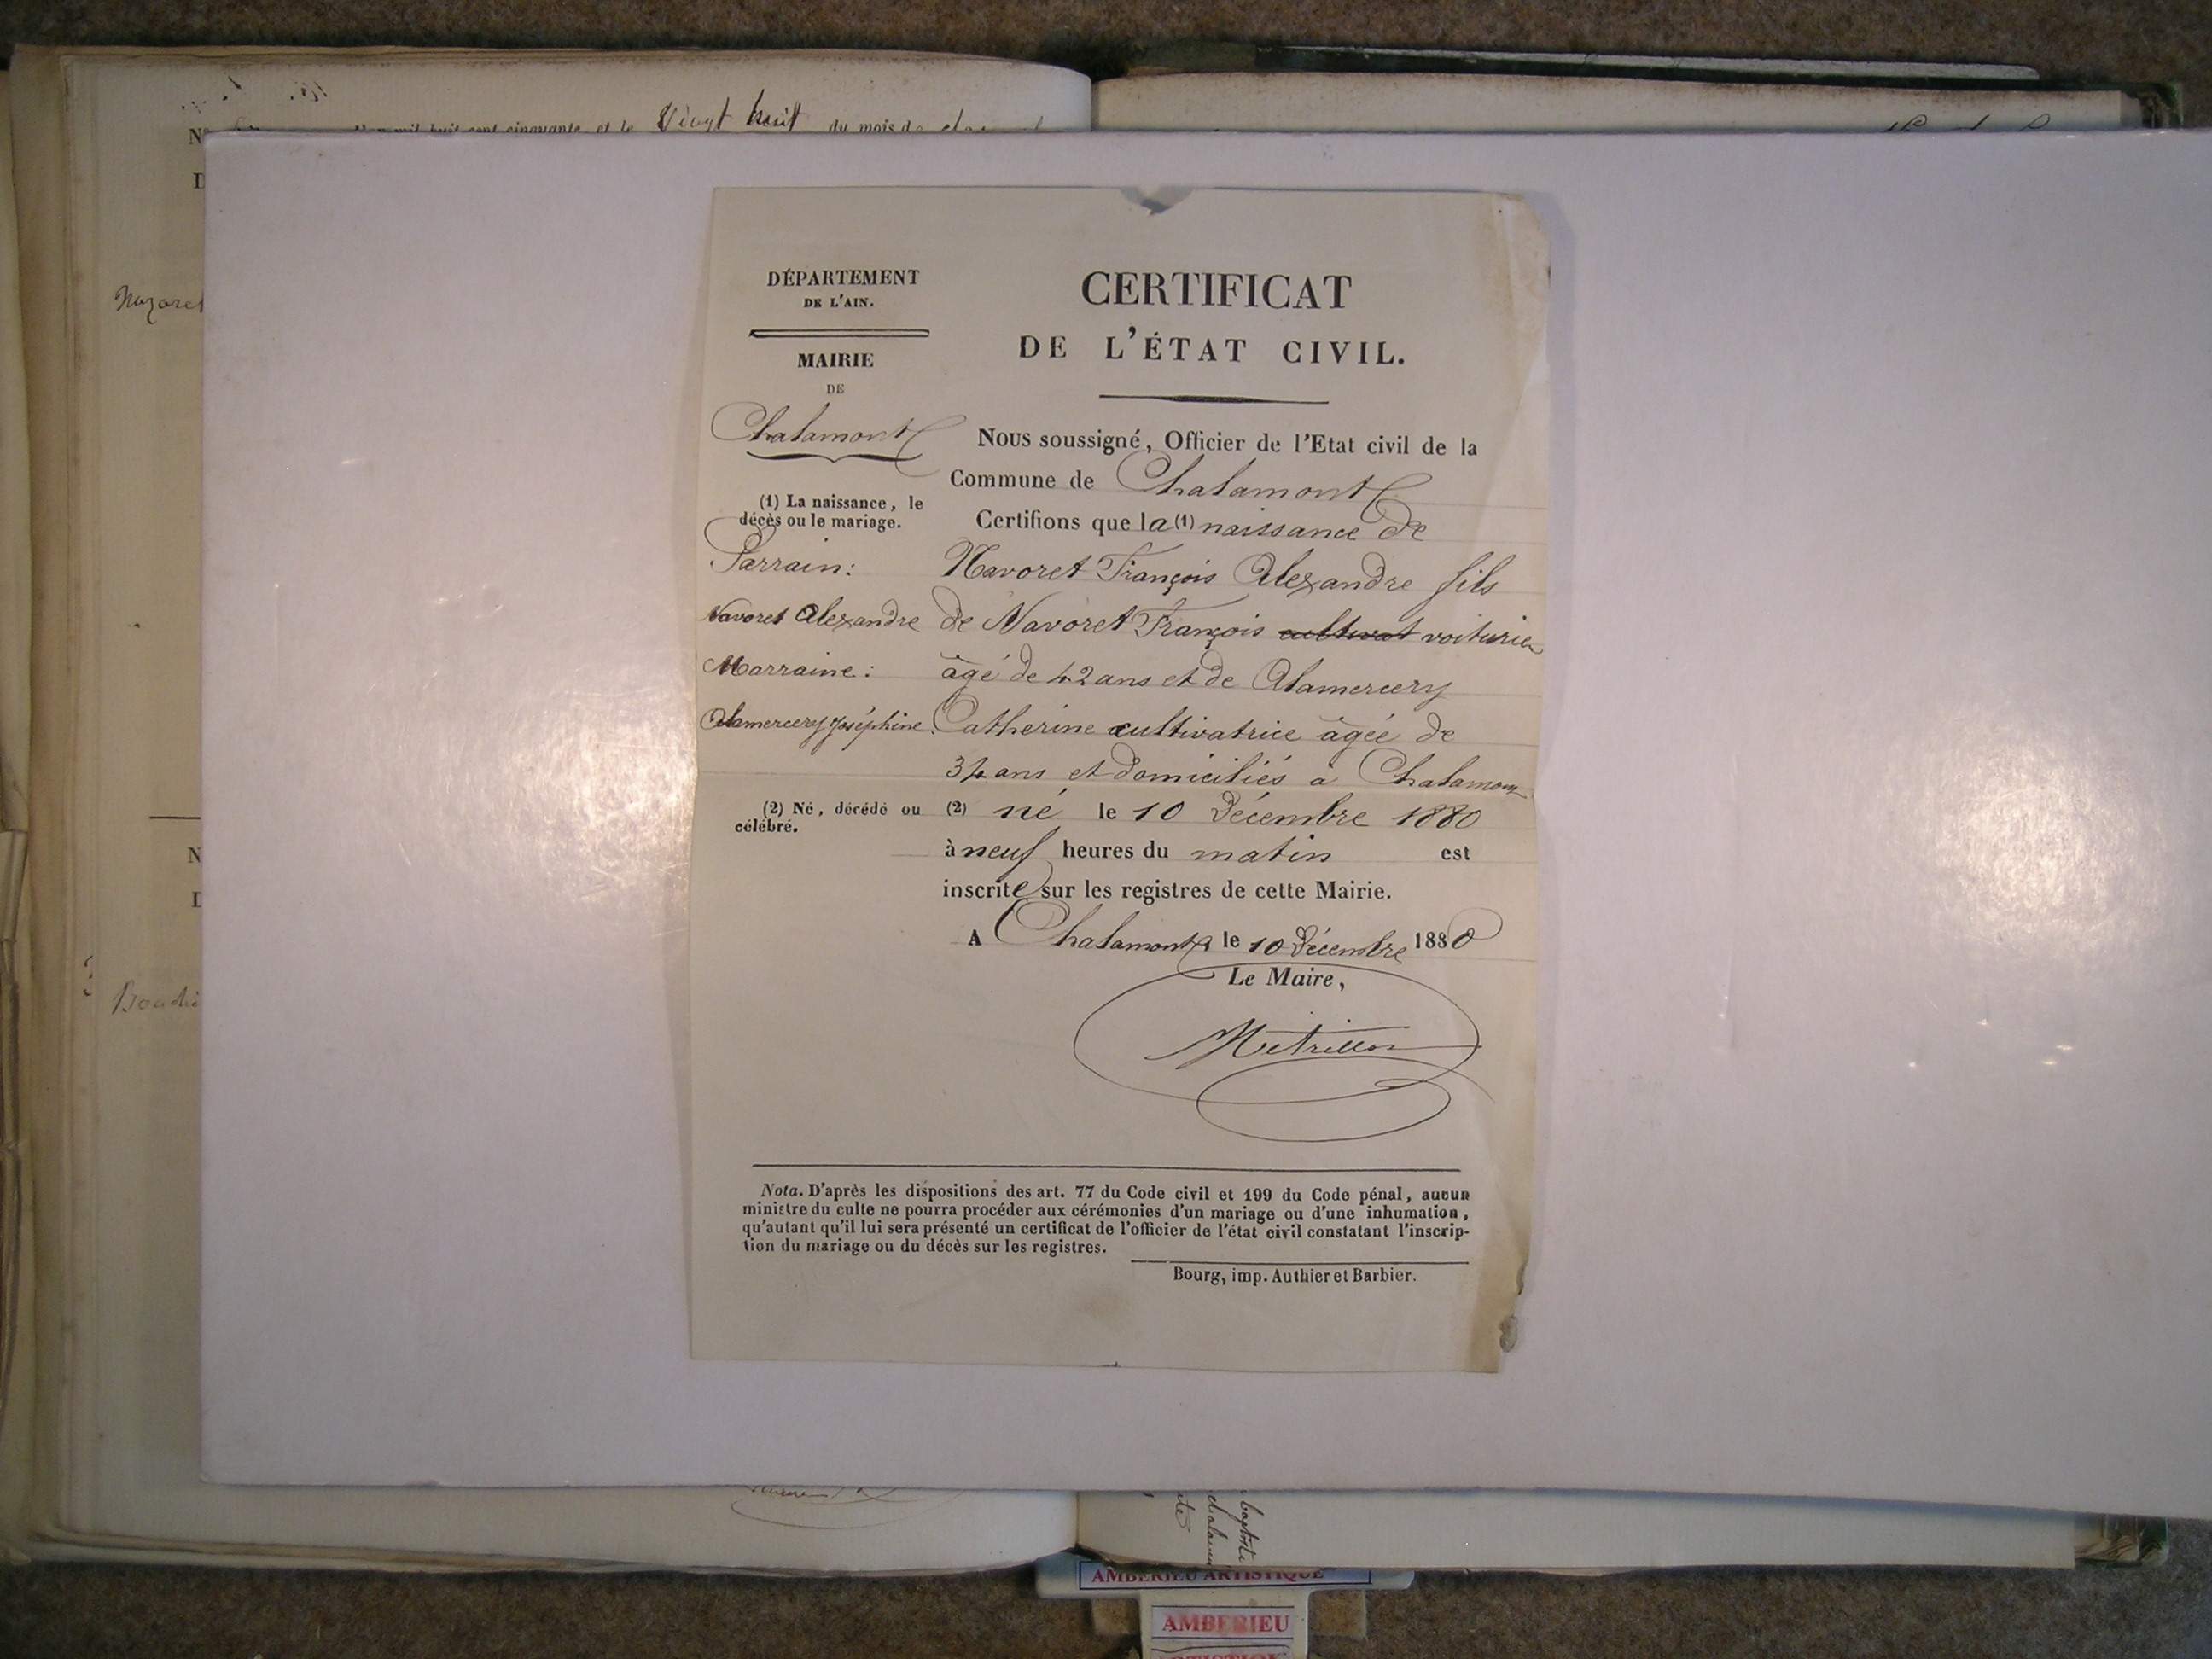 Vingt huit du mois de
DÉPARTEMENT
DE L'AIN.
MAIRIE
DE
Chalamont
CERTIFICAT
DE L'ÉTAT CIVIL.
Nous soussigné, Officier de l'Etat civil de la
Commune de Chalamont
(1) La naissance, le
décès ou le mariage.
Certifions que la (1) naissance de
Parrain:
Navoret François Alexandre fils
Navoret Alexandre
de Navoret François cultivat voiturier
Marraine:
âgé de 42 ans et de Alamercery
Alamercery Joséphine.
Catherine cultivatrice âgée de
34 ans et domiciliés à Chalamont
(2) Né, décédé ou
célébré.
(2) né le 10 Décembre 1880
à neuf heures du matin est
inscrite sur les registres de cette Mairie.
A Chalamont le 10 Décembre 1880
Le Maire,
Métrillon
Nota. D'après les dispositions des art. 77 du Code civil et 199 du Code pénal, aucun
ministre du culte ne pourra procéder aux cérémonies d'un mariage ou d'une inhumation,
qu'autant qu'il lui sera présenté un certificat de l'officier de l'état civil constatant l'inscrip-
tion du mariage ou du décès sur les registres.
Bourg, imp. Authier et Barbier.
AMBERIEU ARTISTIQUE
AMBERIEU